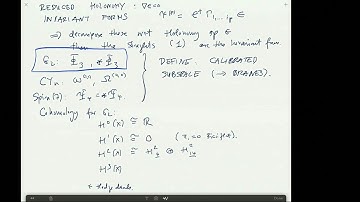 REDUCED HOLONOMY: Deco
INVARIANT FORMS
⇒ decompose these wrt Holonomy gp G
then the singlets (1) are the invariant forms.
G₂: Φ₃, *Φ₃
CYₙ ω^{0,n}, Ω^{(n,0)}
Spin(7): Ψ₄ = *Ψ₄
DEFINE: CALIBRATED
SUBSPACE (→ BRANES).
Cohomology for G₂
H⁰(X) ≅ ℝ
H¹(X) ≅ 0
H²(X) ≅ H²₇ ⊕ H²₁₄
H³(X)
+ Hodge duals.